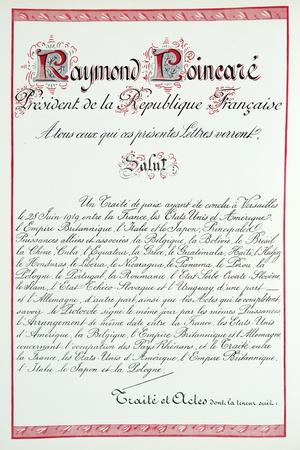 Raymond Poincaré
Président de la République Française
A tous ceux qui ces présentes Lettres verront,
Salut:
Un Traité de paix ayant été conclu à Versailles
le 28 Juin 1919, entre la France, les Etats Unis d'Amérique,
l'Empire Britannique, l'Italie et le Japon, Principales
Puissances alliées et associées, la Belgique, la Bolivie, le Brésil
la Chine, Cuba, l'Equateur, la Grèce, le Guatemala, Haïti, l'Hedjaz
le Honduras, le Libéria, le Nicaragua, le Panama, le Pérou la
Pologne, le Portugal, la Roumanie, l'Etat Serbe-Croate-Slovène
le Siam, l'Etat Tchéco-Slovaque et l'Uruguay, d'une part —
et l'Allemagne, d'autre part, ainsi que les Actes qui le complètent,
savoir le Protocole signé le même jour par les mêmes Puissances
l'Arrangement de même date entre la France, les Etats Unis
d'Amérique, la Belgique, l'Empire Britannique et l'Allemagne
concernant l'occupation des Pays Rhénans, et le Traité entre
la France, les Etats Unis d'Amérique, l'Empire Britannique,
l'Italie, le Japon et la Pologne,
Traité et Actes dont la teneur suit: